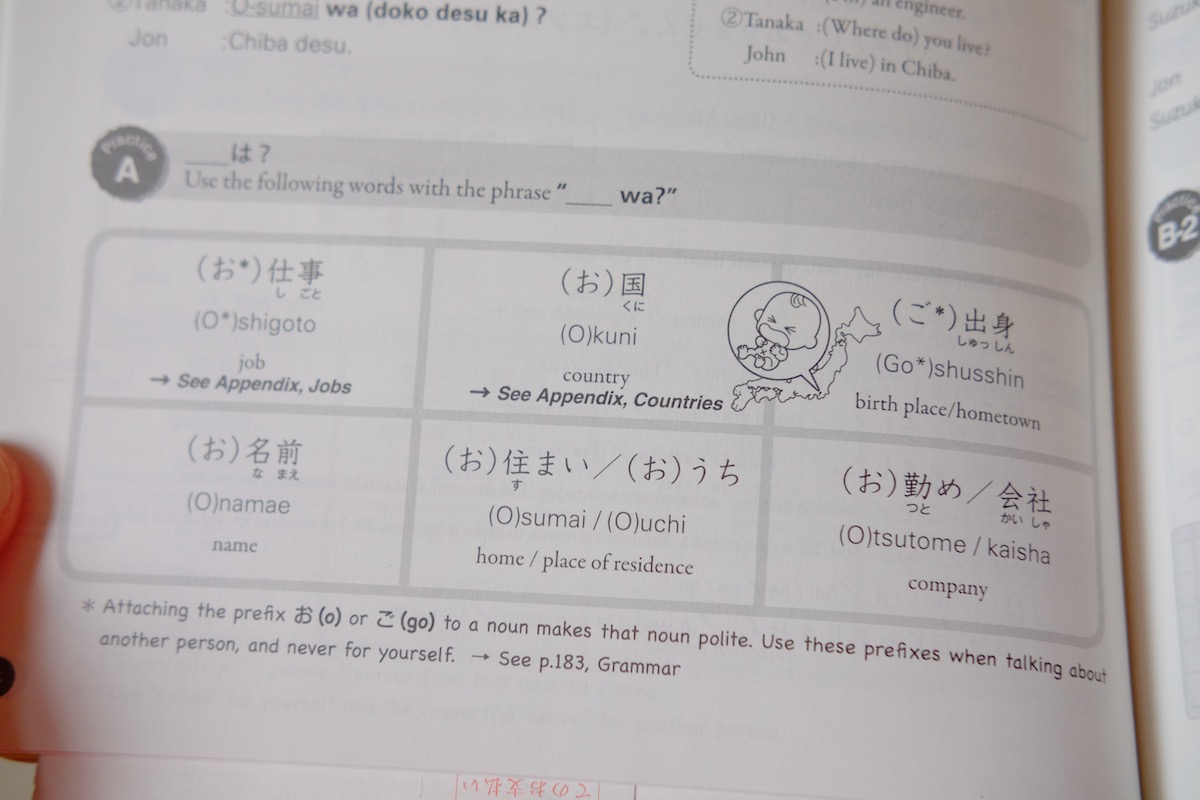 ②Tanaka :O-sumai wa (doko desu ka) ?
Jon :Chiba desu.
an engineer.
②Tanaka :(Where do) you live?
John :(I live) in Chiba.
Practice A
____は？
Use the following words with the phrase “____ wa?”
（お*）仕事
し ごと
(O*)shigoto
job
→ See Appendix, Jobs
（お）国
くに
(O)kuni
country
→ See Appendix, Countries
（ご*）出身
しゅっ しん
(Go*)shusshin
birth place/hometown
（お）名前
な まえ
(O)namae
name
（お）住まい／（お）うち
す
(O)sumai / (O)uchi
home / place of residence
（お）勤め／会社
つと かい しゃ
(O)tsutome / kaisha
company
* Attaching the prefix お (o) or ご (go) to a noun makes that noun polite. Use these prefixes when talking about
another person, and never for yourself. → See p.183, Grammar
Jon
Practice B-2
てのお支払い